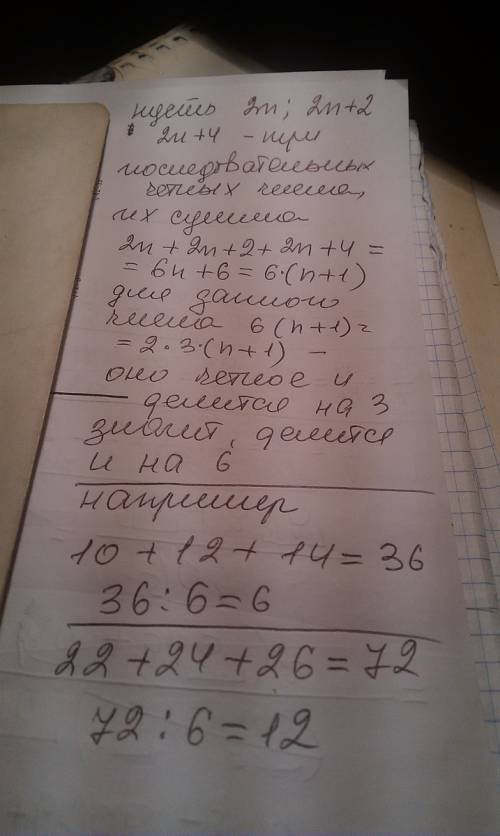 пусть 2n; 2n+2
2n+4 - три
последвательных
четных числа,
их сумма
2n+2n+2+2n+4=
=6n+6=6·(n+1)
для данного
числа 6(n+1)=
=2·3·(n+1) -
оно четное и
делится на 3
значит, делится
и на 6
например
10+12+14=36
36:6=6
22+24+26=72
72:6=12